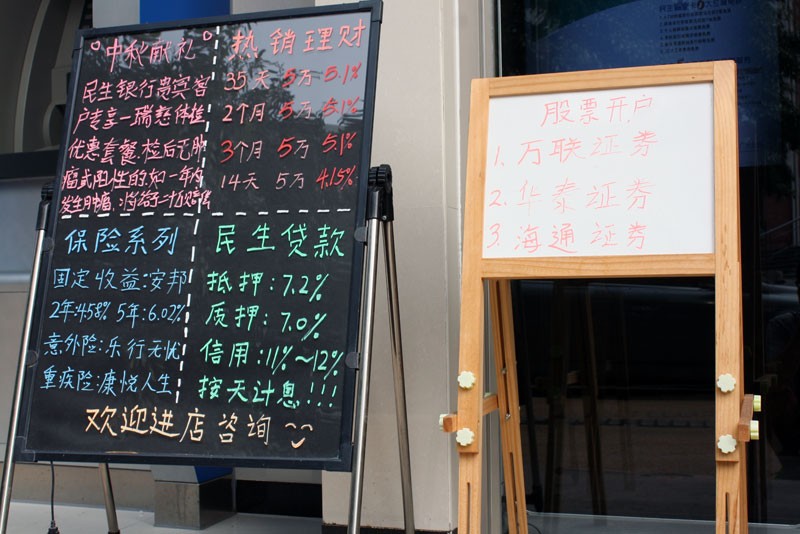 中秋献礼
民生银行贵宾客
户专享一瑞慈体检
优惠套餐,检后无肿
瘤或阴性的如一年内
发生肿瘤,将给二十万赔
热销理财
35天 5万 5.1%
2个月 5万 5.1%
3个月 5万 5.1%
14天 5万 4.15%
保险系列
固定收益:安邦
2年:4.58% 5年:6.02%
意外险:乐行无忧
重疾险:康悦人生
民生贷款
抵押:7.2%
质押:7.0%
信用:11%~12%
按天计息!!!
欢迎进店咨询
股票开户
1.万联证券
2.华泰证券
3.海通证券